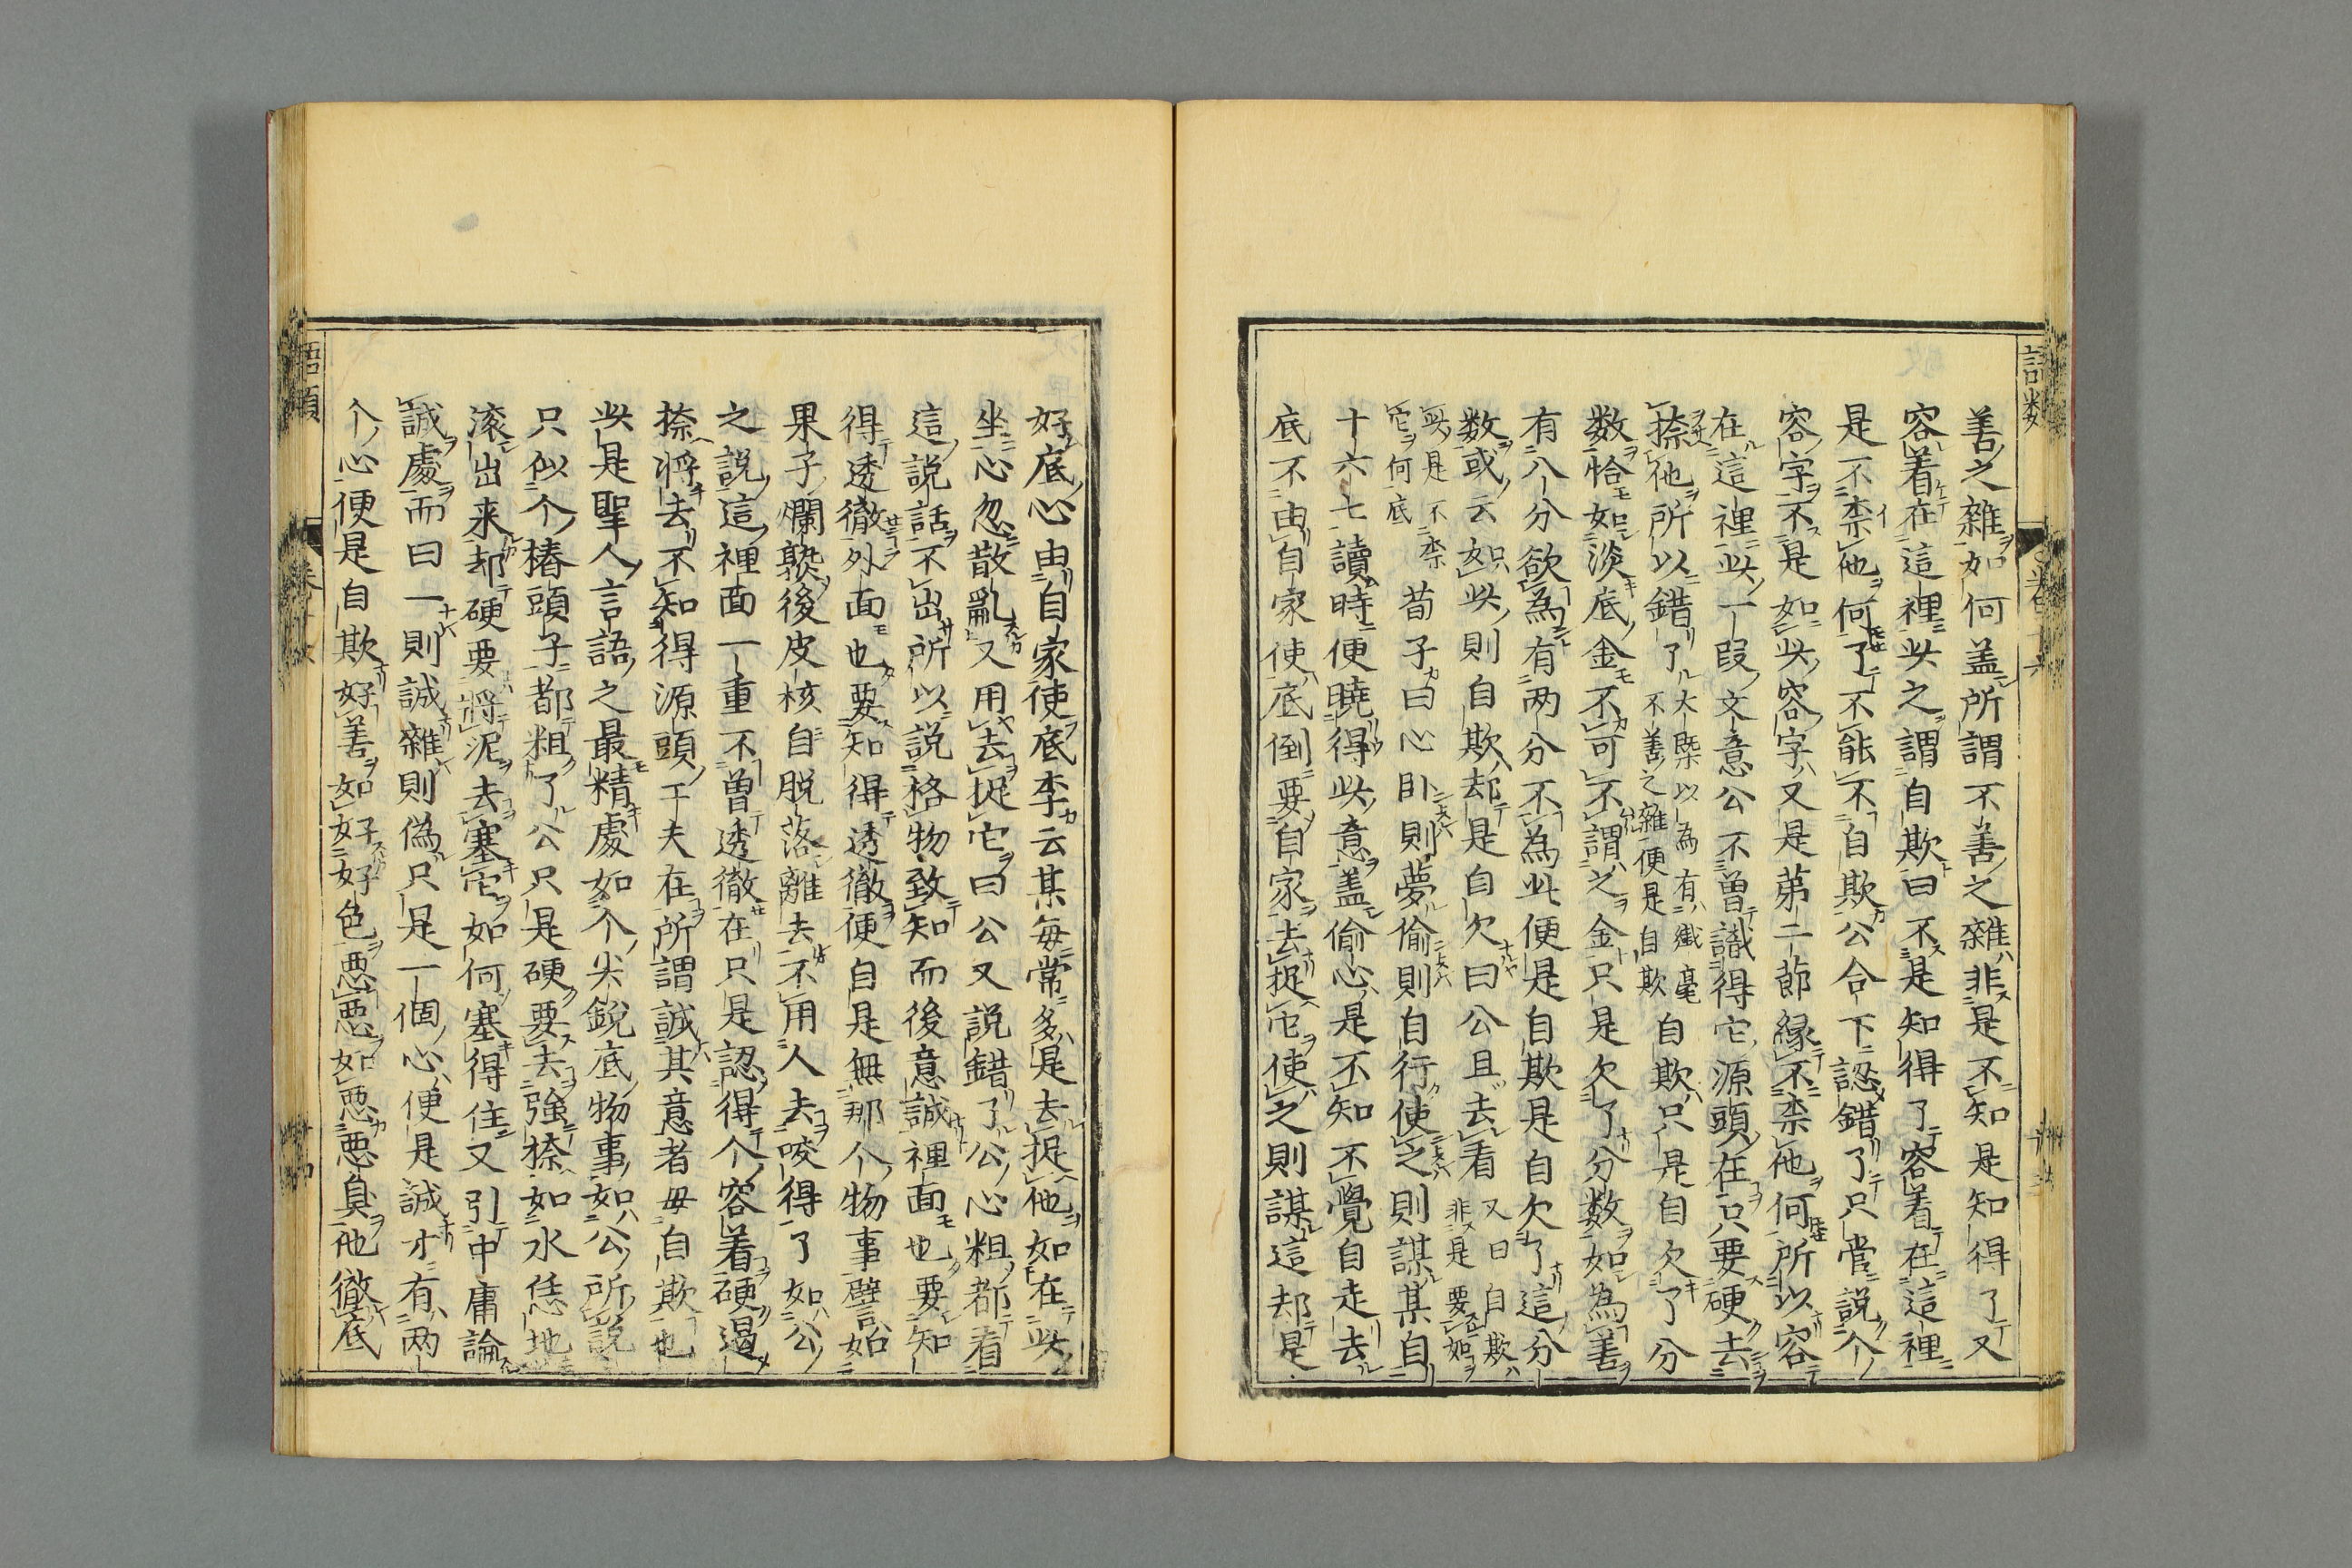 語类
卷十六
善之雜如何盖所謂不善之雜非是不知是知得了又
容着在這裡此之謂自欺曰不是知得了容着在這裡
是不柰他何了不能不自欺公合下認錯了只管説个
容字不是如此容字又是第二節縁不柰他何所以容
在這裡此一段文意公不曾識得它源頭在只要硬去
捺他所以錯了
大槩以為有纎毫
不善之雜便是自欺
自欺只是自欠了分
数恰如淡底金不可不謂之金只是欠了分数如為善
有八分欲為有两分不為此便是自欺是自欠了這分
数或云如此則自欺却是自欠曰公且去看
又曰自欺
非是要如
此是不柰
它何底
荀子曰心卧則夢偷則自行使之則謀某自
十六七讀時便曉得此意盖偷心是不知不覺自走去
底不由自家使底倒要自家去捉它使之則謀這却是
好底心由自家使底李云某毎常多是去捉他如在此
坐心忽散亂又用去捉它曰公又説錯了公心粗都看
這説話不出所以説格物致知而後意誠裡面也要知
得透徹外面也要知得透徹便自是無那个物事譬如
果子爛熟後皮核自脱落離去不用人去咬得了如公
之説這裡面一重不曾透徹在只是認得个容着硬遏
捺將去不知得源頭工夫在所謂誠其意者毋自欺也
此是聖人言語之最精處如个尖鋭底物事如公所説
只似个樁頭子都粗了公只是硬要去強捺如水恁地
滚出来却硬要將泥去塞它如何塞得住又引中庸論
誠處而曰一則誠雜則偽只是一個心便是誠才有两
个心便是自欺好善如好好色惡惡如惡惡臭他徹底
語類